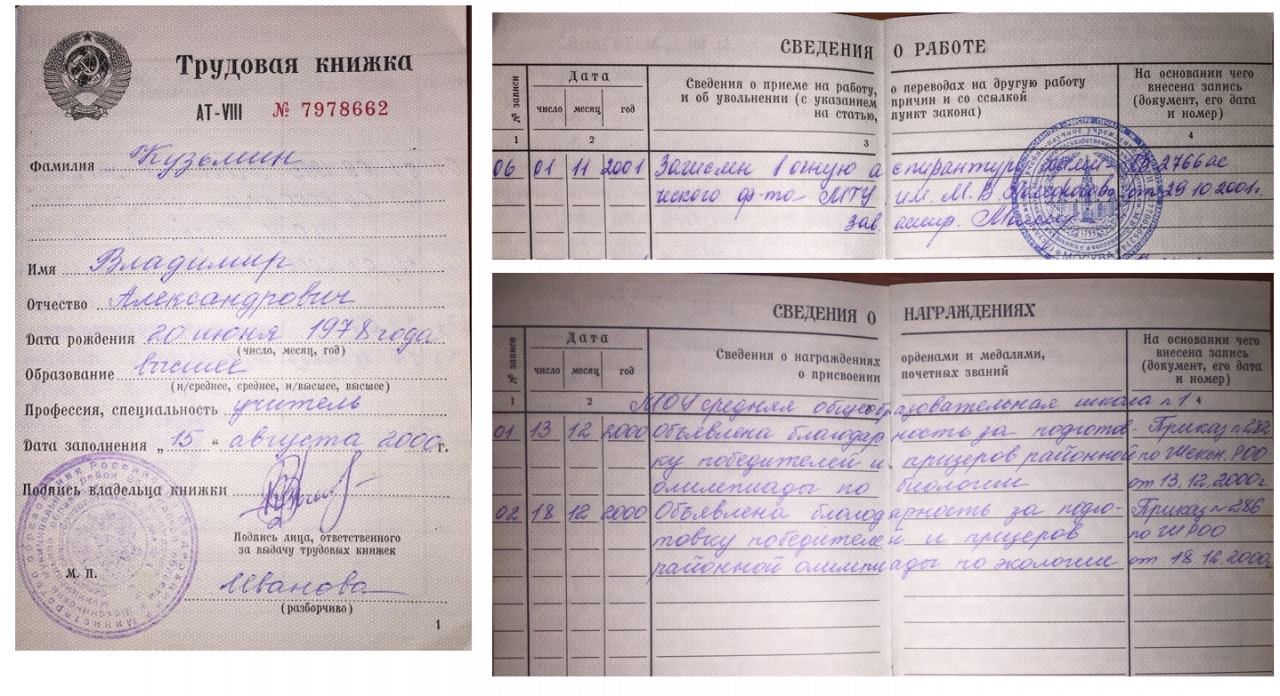 Трудовая книжка
АТ-VIII № 7978662
Фамилия Кузьмин
Имя Владимир
Отчество Александрович
Дата рождения 20 июня 1978 года
(число, месяц, год)
Образование высшее
(н/среднее, среднее, н/высшее, высшее)
Профессия, специальность учитель
Дата заполнения „ 15 “ августа 2000 г.
Подпись владельца книжки
Подпись лица, ответственного
за выдачу трудовых книжек
М. П.
Иванова
(разборчиво)
1
СВЕДЕНИЯ О РАБОТЕ
№ записи
Дата
число месяц год
Сведения о приеме на работу, о переводах на другую работу
и об увольнении (с указанием причин и со ссылкой
на статью, пункт закона)
На основании чего
внесена запись
(документ, его дата
и номер)
1 2 3 4
06 01 11 2001 Зачислен в очную аспирантуру 2766ас
ческого ф-та МГУ им. М. В. Ломоносова от 29.10.2001г.
зав. аспир.
МОСКВА
СВЕДЕНИЯ О НАГРАЖДЕНИЯХ
№ записи
Дата
число месяц год
Сведения о награждениях орденами и медалями,
о присвоении почетных званий
На основании чего
внесена запись
(документ, его дата
и номер)
1 2 4
МОУ средняя общеобразовательная школа п 1
01 13 12 2000 Объявлена благодарность за подготов- Приказ п 282
ку победителей и призеров районной по Шексн. РОО
олимпиады по биологии от 13.12.2000г
02 18 12 2000 Объявлена благодарность за подго- Приказ п 286
товку победителей и призеров по ШРОО
районной олимпиады по экологии от 18.12.2000г